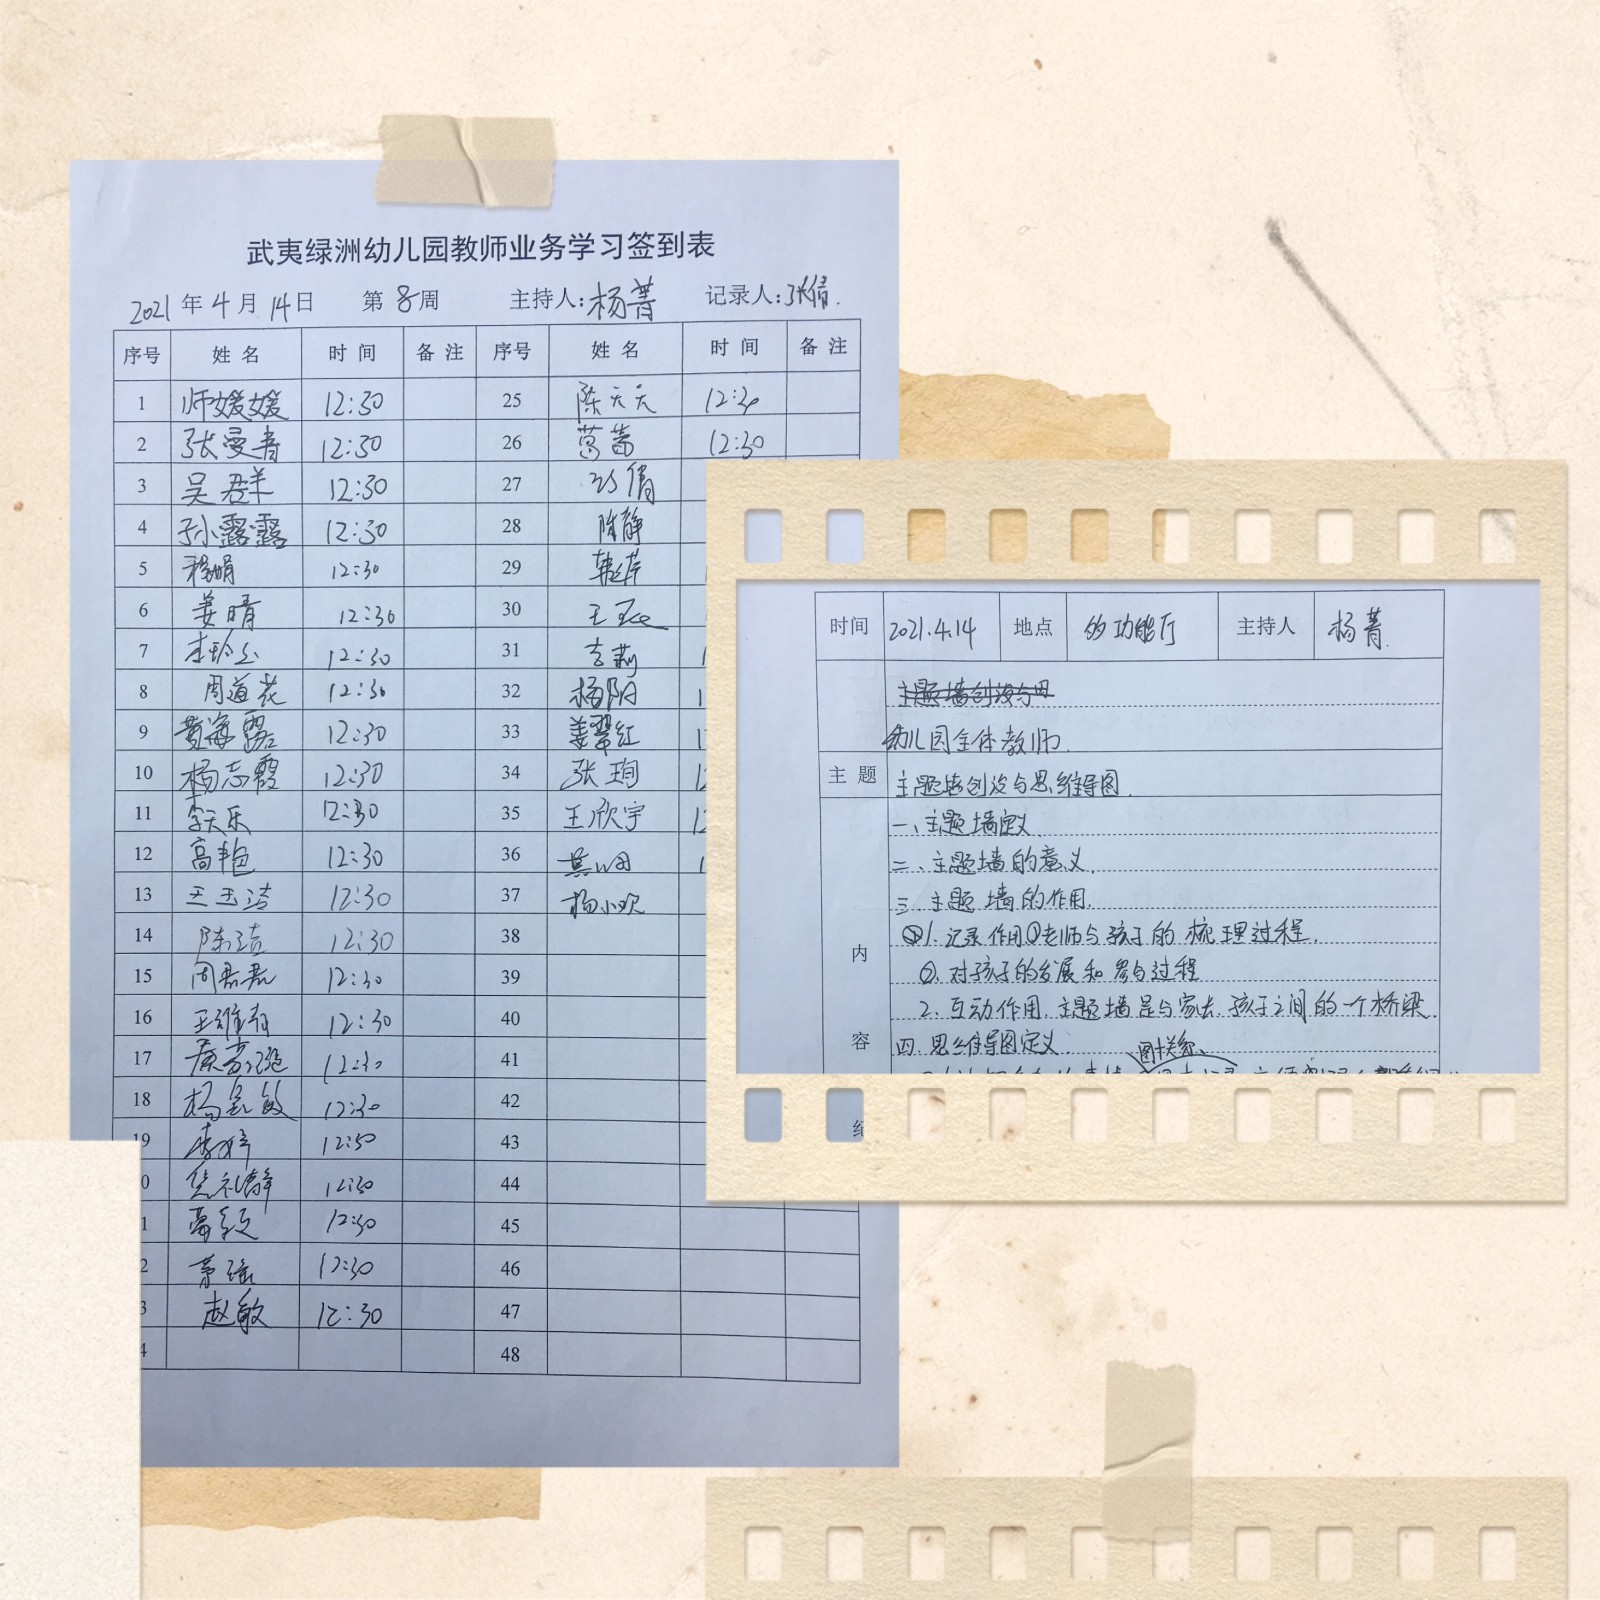 武夷绿洲幼儿园教师业务学习签到表
2021 年 4 月 14 日 第 8 周 主持人: 杨菁 记录人: 张倩.
序号 姓名 时间 备注 序号 姓名 时间 备注
1 师媛媛 12:30 25 陈天天 12:30
2 张曼青 12:30 26 葛蕾 12:30
3 吴君羊 12:30 27 倩
4 孙露露 12:30 28 陈静
5 娟 12:30 29
6 姜晴 12:30 30 王
7 李 12:30 31 吉莉
8 周道花 12:30 32 杨阳
9 黄海露 12:30 33 姜翠红
10 杨志霞 12:30 34 张珣
11 李天乐 12:30 35 王欣宇
12 高艳 12:30 36
13 王玉洁 12:30 37 杨小欢
14 陈洁 12:30 38
15 周磊磊 12:30 39
16 王 12:30 40
17 12:30 41
18 杨 敏 12:30 42
19 李婷 12:30 43
0 静 12:30 44
1 12:30 45
2 茅瑶 12:30 46
3 赵敏 12:30 47
4 48
时间 2021.4.14 地点 多功能厅 主持人 杨菁.
主题墙创设与思
幼儿园全体教师.
主题 主题墙创设与思维导图.
一、主题墙定义
二、主题墙的意义.
三. 主题墙的作用.
1. 记录作用①老师与孩子的梳理过程.
内 ②. 对孩子的发展和参与过程
2. 互动作用. 主题墙是与家长. 孩子之间的一个桥梁.
容 四. 思维导图定义.